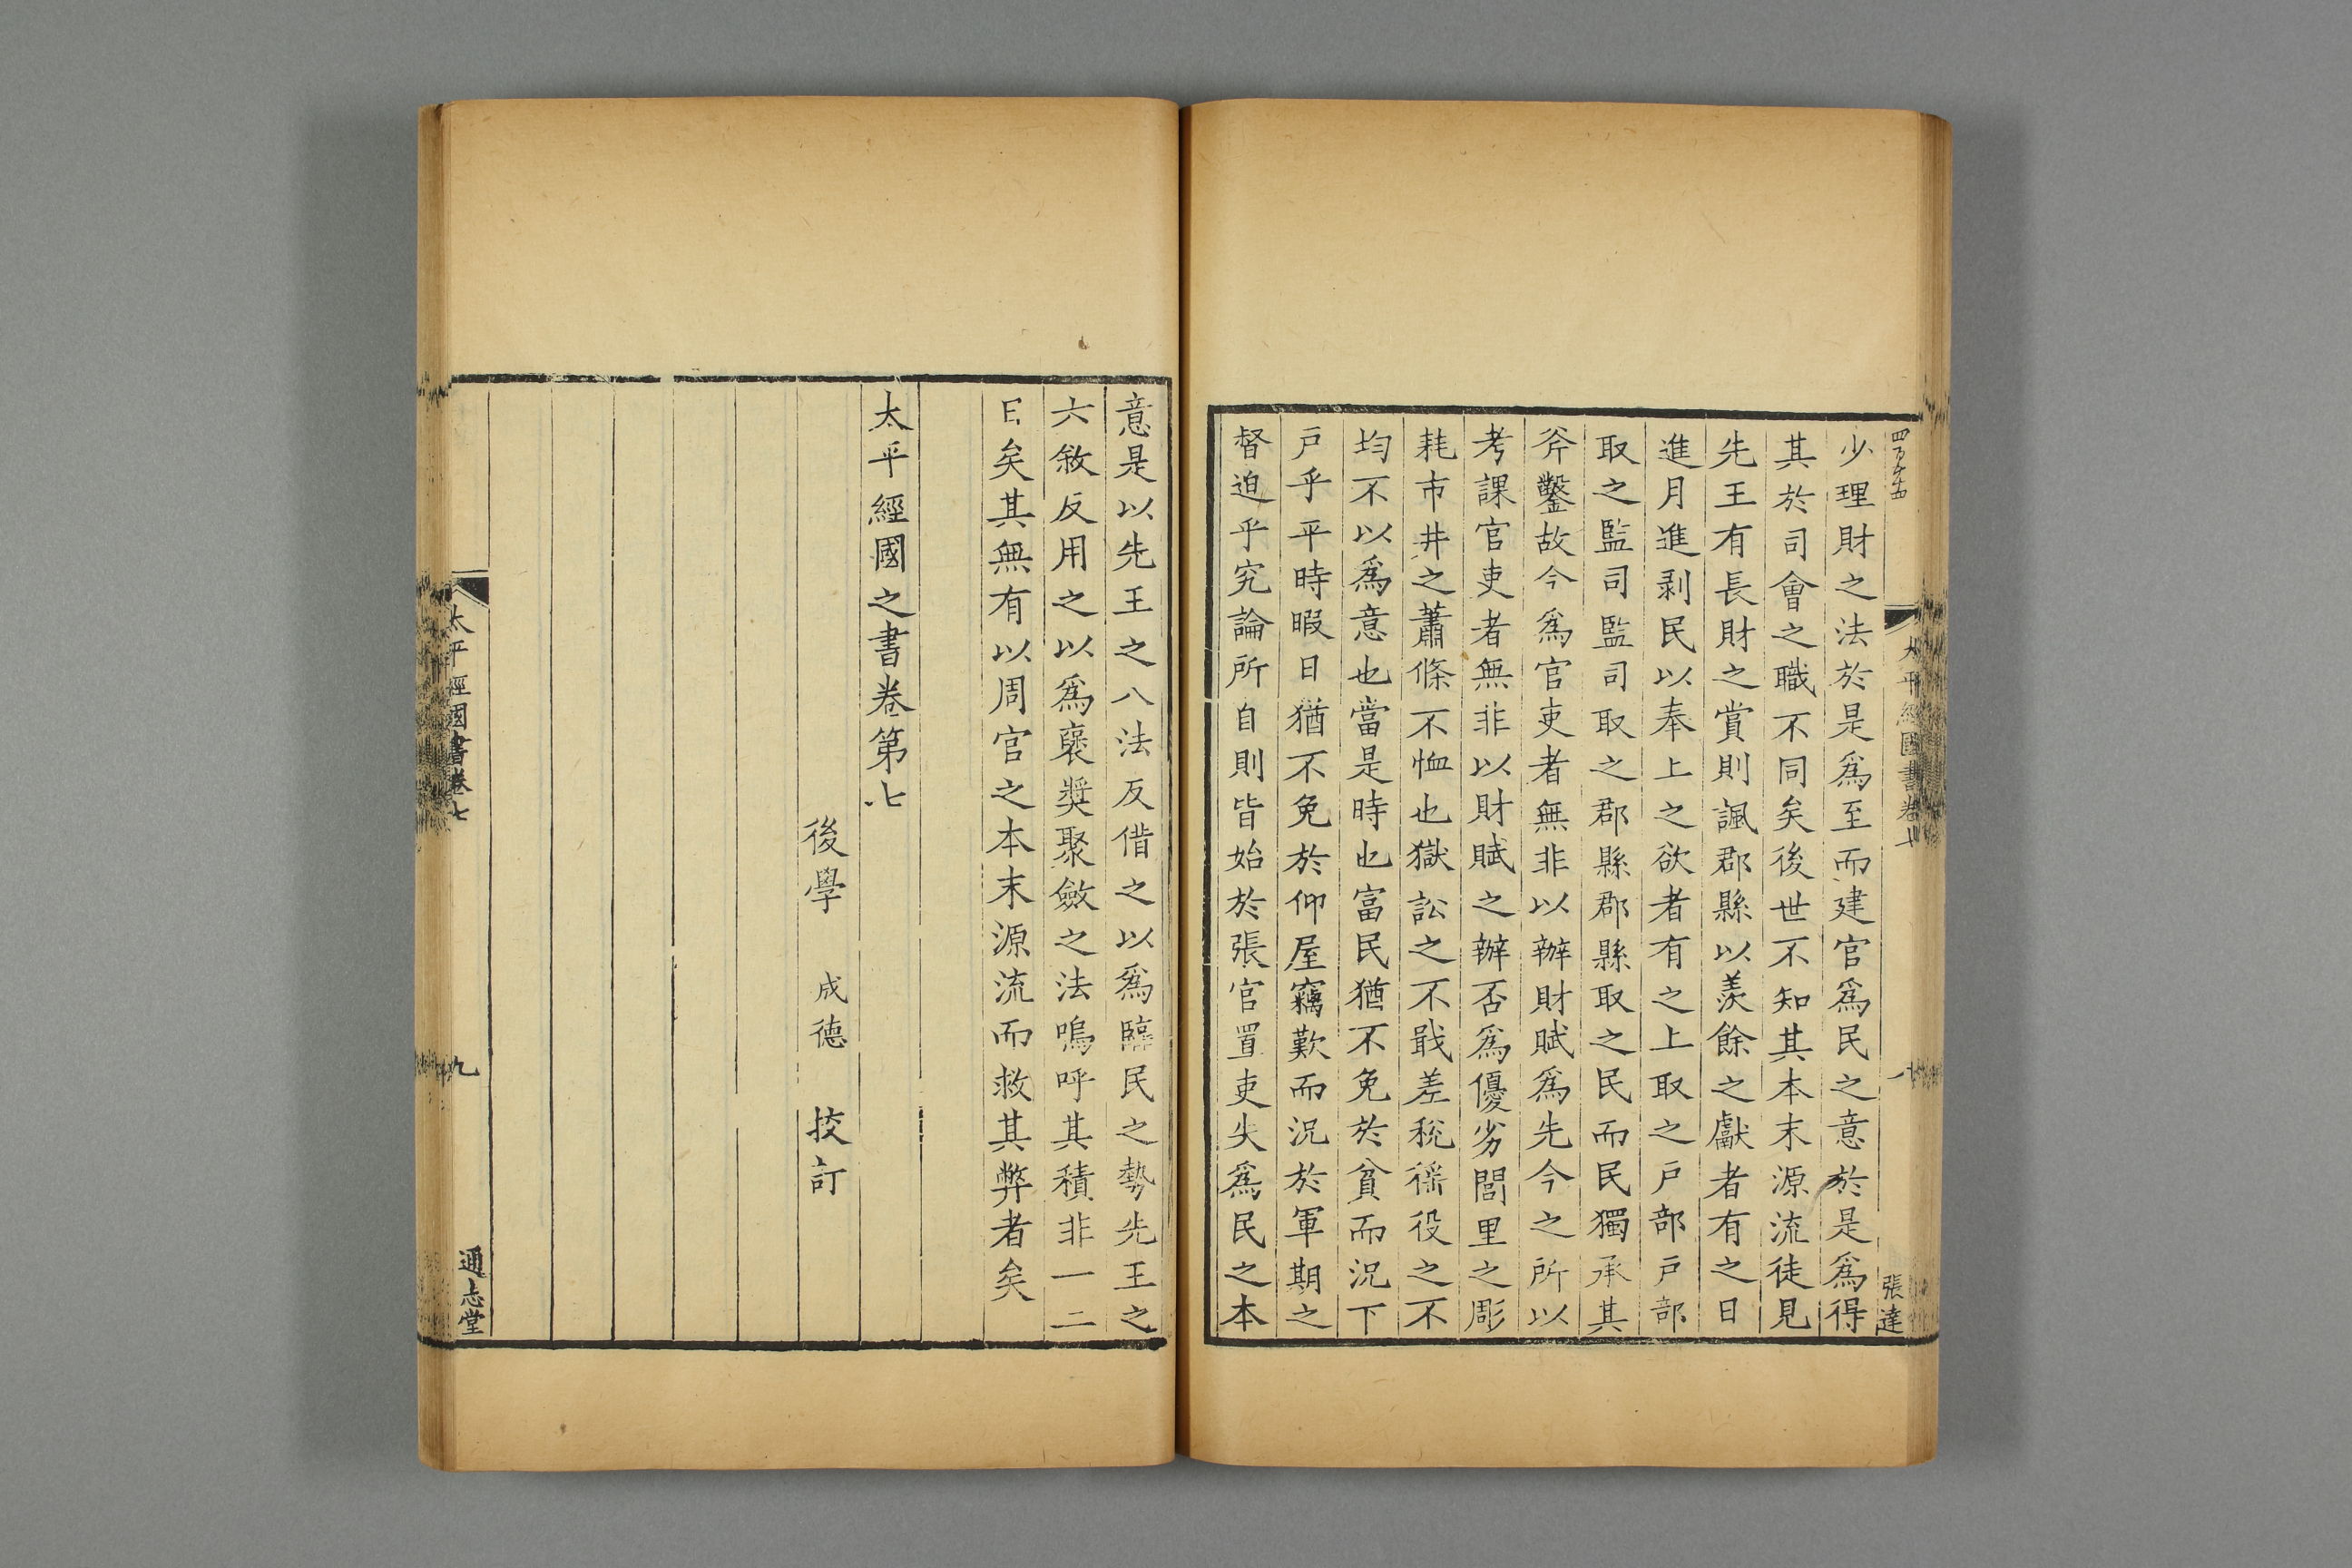 少理財之法於是爲至而建官爲民之意於是爲得
其於司會之職不同矣後世不知其本末源流徒見
先王有長財之賞則諷郡縣以羨餘之獻者有之日
進月進剥民以奉上之欲者有之上取之戸部戸部
取之監司監司取之郡縣郡縣取之民而民獨承其
斧鑿故今爲官吏者無非以辦財賦爲先今之所以
考課官吏者無非以財賦之辦否爲優劣閭里之彫
耗市井之蕭條不恤也獄訟之不戢差稅徭役之不
均不以爲意也當是時也富民猶不免於貧而況下
戸乎平時暇日猶不免於仰屋竊歎而況於軍期之
督迫乎究論所自則皆始於張官置吏失爲民之本
張達
意是以先王之八法反借之以爲臨民之勢先王之
六敘反用之以爲褒奬聚斂之法嗚呼其積非一二
日矣其無有以周官之本末源流而救其弊者矣
太平經國之書卷第七
後學 成德 挍訂
太平經國書卷七
九
通志堂